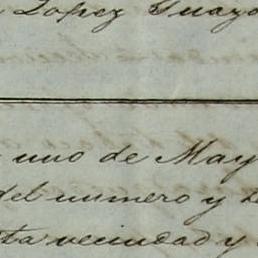 Lopez Guayo
uno de May
del numero y
ta vecindad y